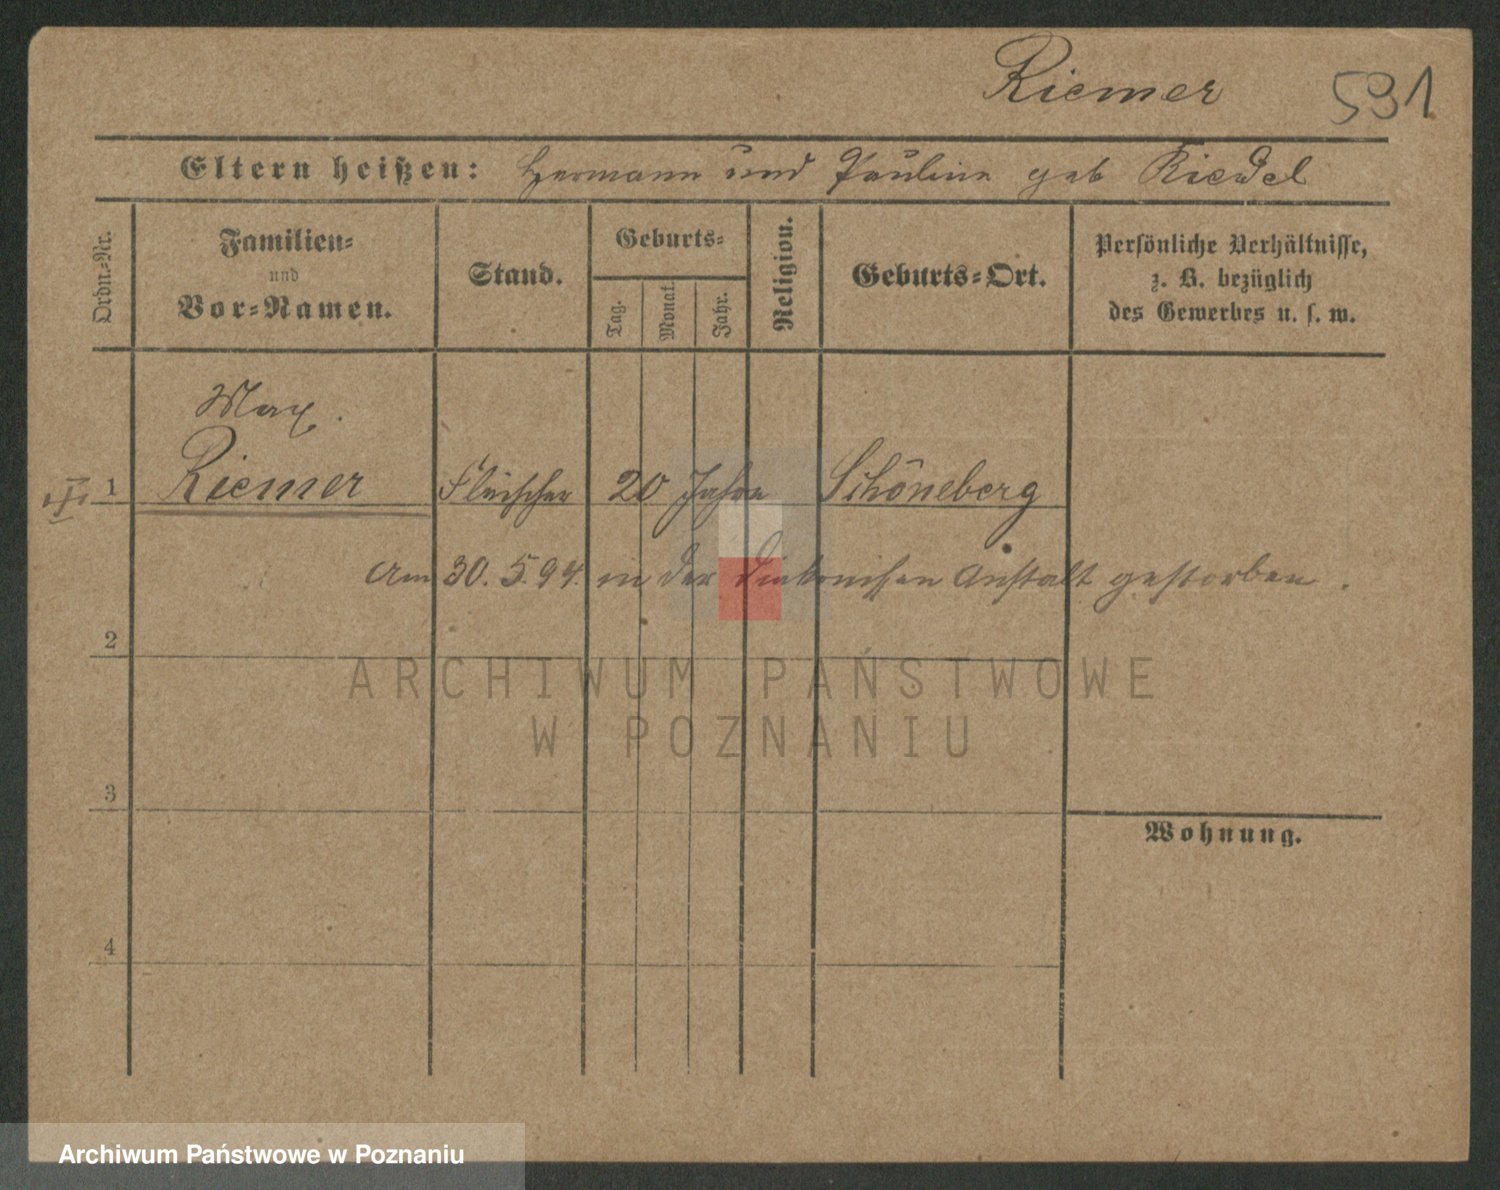 Riemer 591
Eltern heißen: Hermann und Pauline geb Riedel
Ordn.-Nr.
Familien-
und
Vor-Namen.
Stand.
Geburts-
Tag.
Monat.
Jahr.
Religion.
Geburts-Ort.
Persönliche Verhältnisse,
z. B. bezüglich
des Gewerbes u. s. w.
Max.
1 Riemer Fleischer 20 Jahre Schöneberg
Am 30.5.94. in der Diakonissen Anstalt gestorben.
2
ARCHIWUM PAŃSTWOWE
W POZNANIU
3
Wohnung.
4
Archiwum Państwowe w Poznaniu